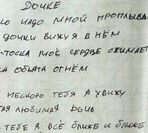 Дочке
ко надо мной проплыва
дочки вижу я в нём
тоска моё сердце сжимает
ка объята огнём
нескоро тебя я увижу
ая любимая дочь
тебе я всё ближе и ближе